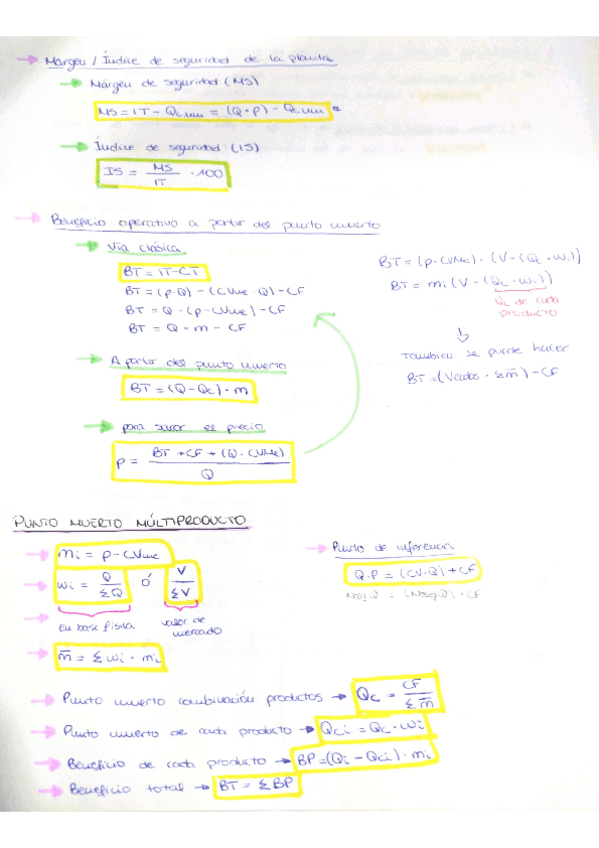 Margen / Índice de seguridad de la planta
Márgen de seguridad (MS)
MS = IT - Qc um = (Q · p) - Qc um
Índice de seguridad (IS)
IS = MS / IT · 100
Beneficio operativo a partir del punto muerto
Vía clásica
BT = IT - CT
BT = (p · Q) - (CVme · Q) - CF
BT = Q · (p - CVme) - CF
BT = Q · m - CF
BT = (p - CVMe) · (V - (Qc · wi))
BT = mi (V - (Qc · wi))
Qc de cada
producto
También se puede hacer
BT = (Ventas · Σm̄) - CF
A partir del punto muerto
BT = (Q - Qc) · m
para sacar el precio
p = BT + CF + (Q · CVMe) / Q
PUNTO MUERTO MÚLTIPRODUCTO
mi = p - CVme
wi = Q / ΣQ ó V / ΣV
en base física
valor de
mercado
m̄ = Σ wi · mi
Punto de inferencia
Q · P = (CV · Q) + CF
Punto muerto combinación productos → Qc = CF / Σm̄
Punto muerto de cada producto → Qci = Qc · wi
Beneficio de cada producto → BP = (Qi - Qci) · mi
Beneficio total → BT = Σ BP